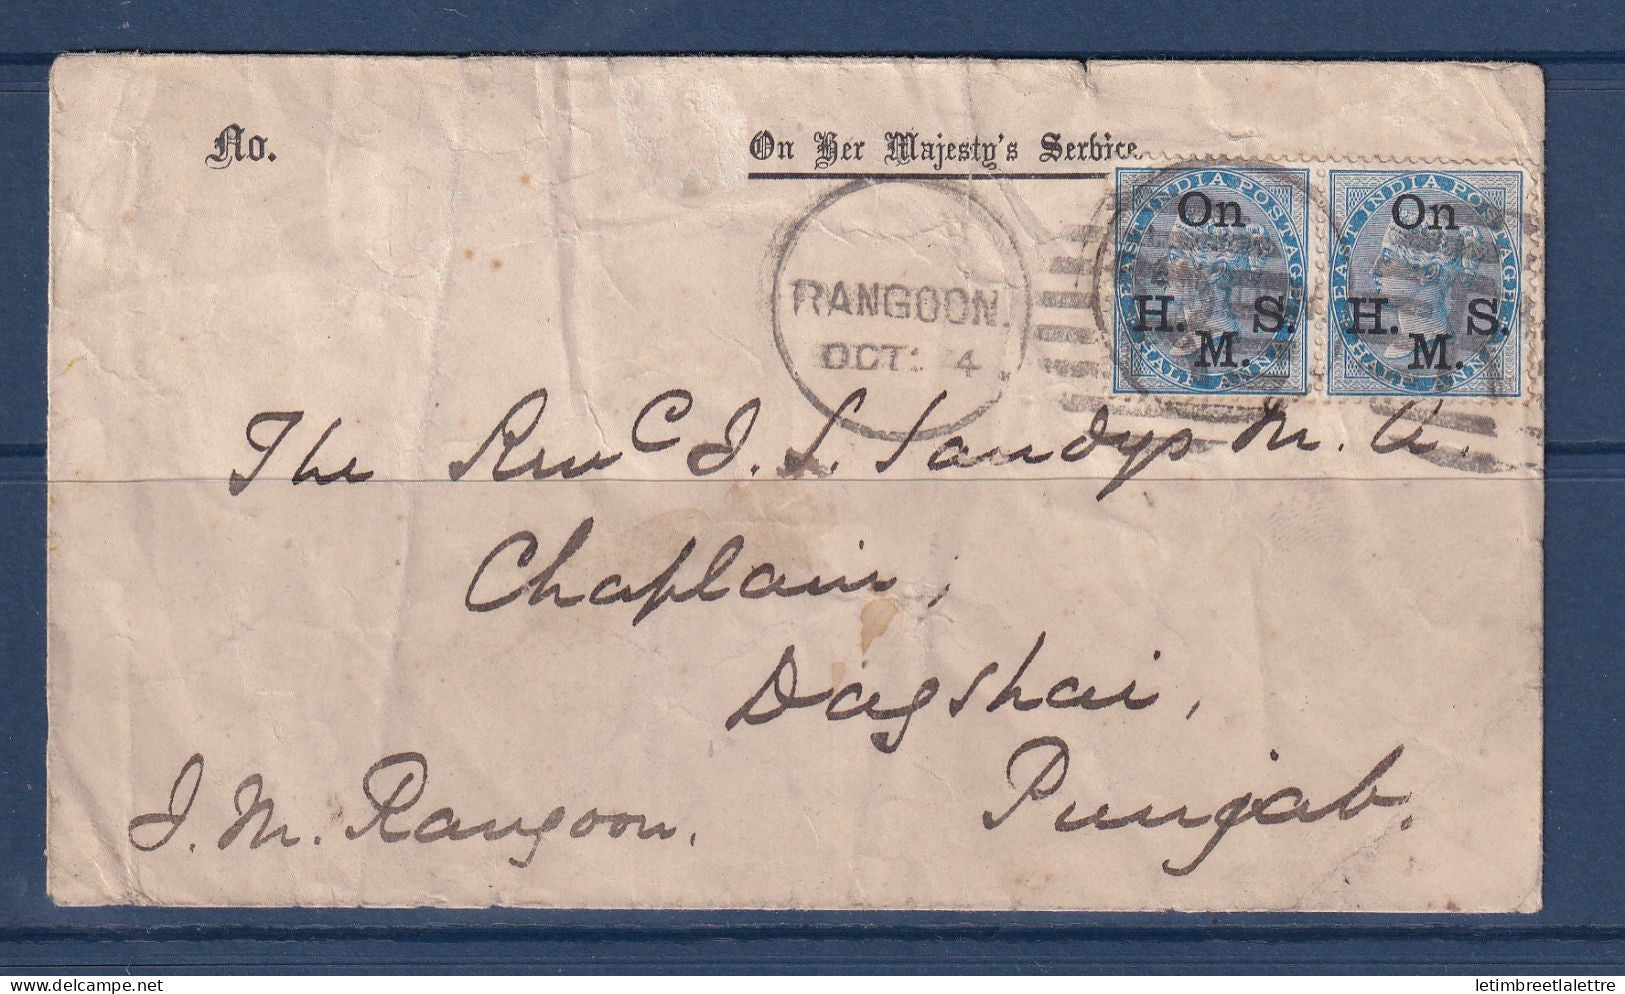 No. On Her Majesty's Service
RANGOON.
OCT: 4
EAST INDIA POSTAGE EAST INDIA POSTAGE
On On
H. S. H. S.
M. M.
HALF ANNA HALF ANNA
The Revd J. S. Sandys M. A.
Chaplain,
Dagshai,
Punjab.
J. M. Rangoon.
delcampe.net
letimbreetlalettre